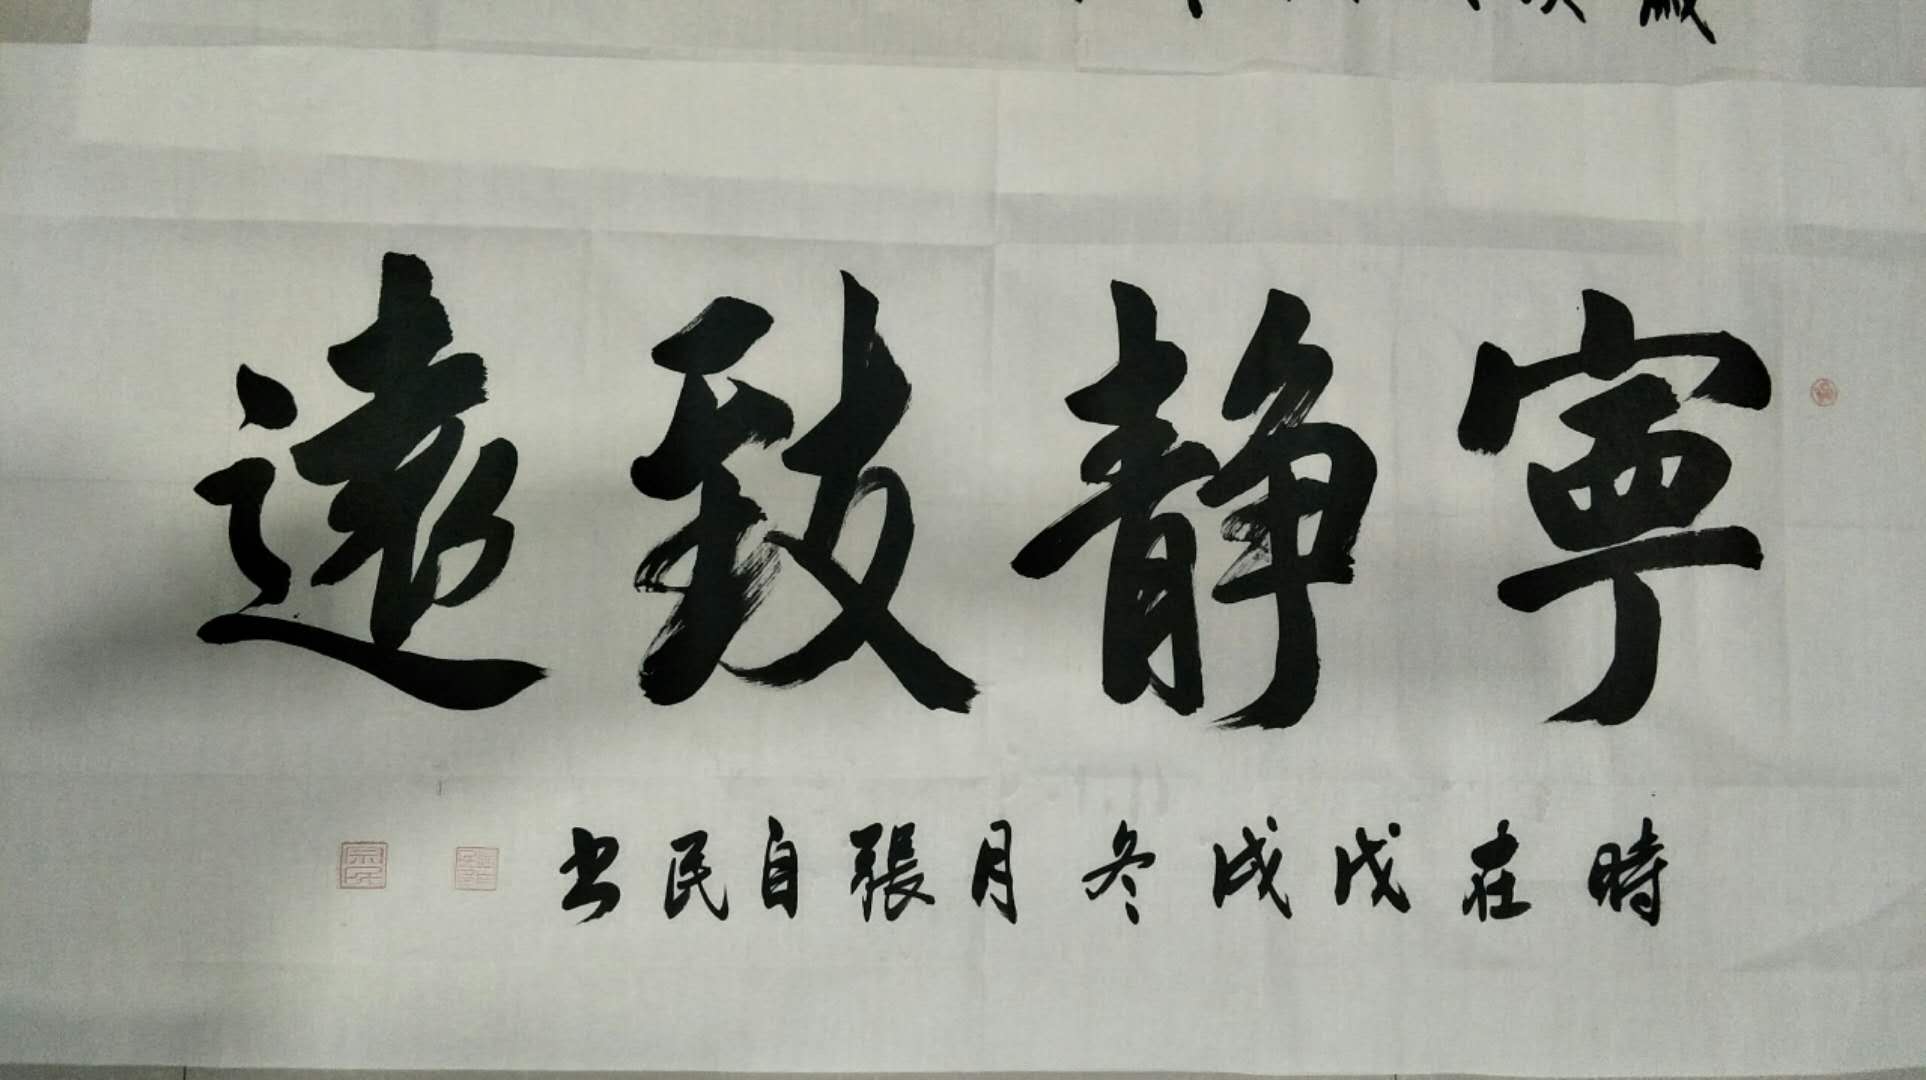 寧靜致遠
時在戊戌冬月張自民书